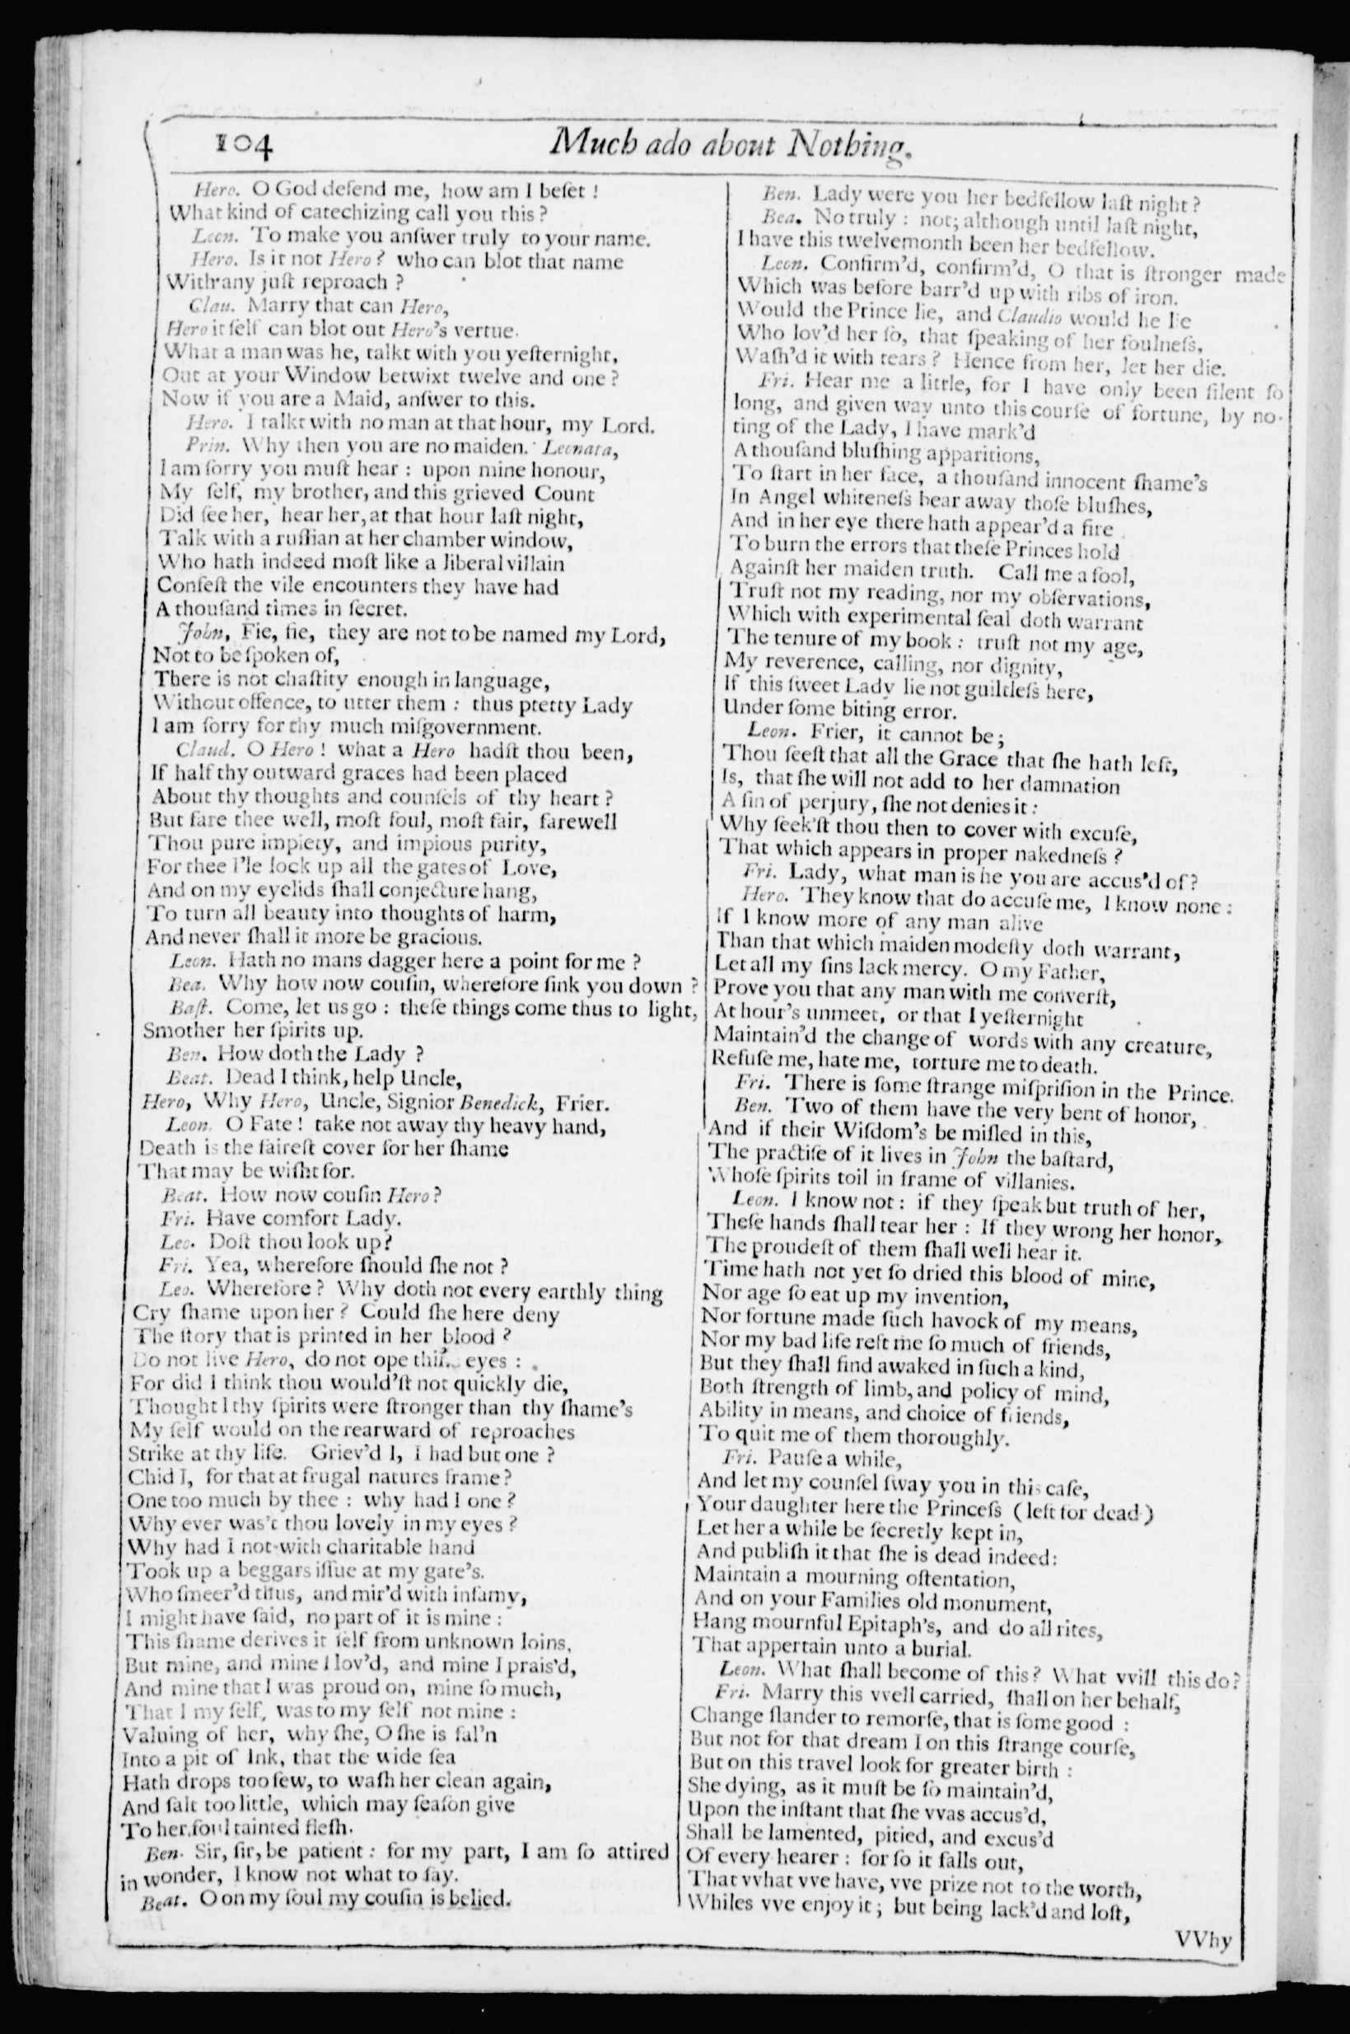 104
Much ado about Nothing.
Hero. O God defend me, how am I beſet !
What kind of catechizing call you this ?
Leon. To make you anſwer truly to your name.
Hero. Is it not Hero ? who can blot that name
With any juſt reproach ?
Clau. Marry that can Hero,
Hero it ſelf can blot out Hero's vertue.
What a man was he, talkt with you yeſternight,
Out at your Window betwixt twelve and one ?
Now if you are a Maid, anſwer to this.
Hero. I talkt with no man at that hour, my Lord.
Prin. Why then you are no maiden. Leonata,
I am ſorry you muſt hear : upon mine honour,
My ſelf, my brother, and this grieved Count
Did ſee her, hear her, at that hour laſt night,
Talk with a ruffian at her chamber window,
Who hath indeed moſt like a liberal villain
Confeſt the vile encounters they have had
A thouſand times in ſecret.
John, Fie, fie, they are not to be named my Lord,
Not to be ſpoken of,
There is not chaſtity enough in language,
Without offence, to utter them : thus pretty Lady
I am ſorry for thy much miſgovernment.
Claud. O Hero ! what a Hero hadſt thou been,
If half thy outward graces had been placed
About thy thoughts and counſels of thy heart ?
But fare thee well, moſt foul, moſt fair, farewell
Thou pure impiety, and impious purity,
For thee I'le lock up all the gates of Love,
And on my eyelids ſhall conjecture hang,
To turn all beauty into thoughts of harm,
And never ſhall it more be gracious.
Leon. Hath no mans dagger here a point for me ?
Bea. Why how now couſin, wherefore ſink you down ?
Baſt. Come, let us go : theſe things come thus to light,
Smother her ſpirits up.
Ben. How doth the Lady ?
Beat. Dead I think, help Uncle,
Hero, Why Hero, Uncle, Signior Benedick, Frier.
Leon. O Fate ! take not away thy heavy hand,
Death is the faireſt cover for her ſhame
That may be wiſht for.
Beat. How now couſin Hero ?
Fri. Have comfort Lady.
Leo. Doſt thou look up?
Fri. Yea, wherefore ſhould ſhe not ?
Leo. Wherefore ? Why doth not every earthly thing
Cry ſhame upon her ? Could ſhe here deny
The ſtory that is printed in her blood ?
Do not live Hero, do not ope eyes :
For did I think thou would'ſt not quickly die,
Thought I thy ſpirits were ſtronger than thy ſhame's
My ſelf would on the rearward of reproaches
Strike at thy life. Griev'd I, I had but one ?
Chid I, for that at frugal natures frame ?
One too much by thee : why had I one ?
Why ever was't thou lovely in my eyes ?
Why had I not with charitable hand
Took up a beggars iſſue at my gate's.
Who ſmeer'd thus, and mir'd with infamy,
I might have ſaid, no part of it is mine :
This ſhame derives it ſelf from unknown loins,
But mine, and mine I lov'd, and mine I prais'd,
And mine that I was proud on, mine ſo much,
That I my ſelf, was to my ſelf not mine :
Valuing of her, why ſhe, O ſhe is fal'n
Into a pit of Ink, that the wide ſea
Hath drops too few, to waſh her clean again,
And ſalt too little, which may ſeaſon give
To her foul tainted fleſh.
Ben. Sir, ſir, be patient : for my part, I am ſo attired
in wonder, I know not what to ſay.
Beat. O on my ſoul my couſin is belied.
Ben. Lady were you her bedfellow laſt night ?
Bea. No truly : not; although until laſt night,
I have this twelvemonth been her bedfellow.
Leon. Confirm'd, confirm'd, O that is ſtronger made
Which was before barr'd up with ribs of iron.
Would the Prince lie, and Claudio would he lie
Who lov'd her ſo, that ſpeaking of her foulneſs,
Waſh'd it with tears ? Hence from her, let her die.
Fri. Hear me a little, for I have only been ſilent ſo
long, and given way unto this courſe of fortune, by no-
ting of the Lady, I have mark'd
A thouſand bluſhing apparitions,
To ſtart in her face, a thouſand innocent ſhame's
In Angel whiteneſs bear away thoſe bluſhes,
And in her eye there hath appear'd a fire
To burn the errors that theſe Princes hold
Againſt her maiden truth. Call me a fool,
Truſt not my reading, nor my obſervations,
Which with experimental ſeal doth warrant
The tenure of my book : truſt not my age,
My reverence, calling, nor dignity,
If this ſweet Lady lie not guiltleſs here,
Under ſome biting error.
Leon. Frier, it cannot be ;
Thou ſeeſt that all the Grace that ſhe hath left,
Is, that ſhe will not add to her damnation
A ſin of perjury, ſhe not denies it :
Why ſeek'ſt thou then to cover with excuſe,
That which appears in proper nakedneſs ?
Fri. Lady, what man is he you are accus'd of ?
Hero. They know that do accuſe me, I know none :
If I know more of any man alive
Than that which maiden modeſty doth warrant,
Let all my ſins lack mercy. O my Father,
Prove you that any man with me converſt,
At hour's unmeet, or that I yeſternight
Maintain'd the change of words with any creature,
Refuſe me, hate me, torture me to death.
Fri. There is ſome ſtrange miſpriſion in the Prince.
Ben. Two of them have the very bent of honor,
And if their Wiſdom's be miſled in this,
The practiſe of it lives in John the baſtard,
Whoſe ſpirits toil in frame of villanies.
Leon. I know not : if they ſpeak but truth of her,
Theſe hands ſhall tear her : If they wrong her honor,
The proudeſt of them ſhall well hear it.
Time hath not yet ſo dried this blood of mine,
Nor age ſo eat up my invention,
Nor fortune made ſuch havock of my means,
Nor my bad life reft me ſo much of friends,
But they ſhall find awaked in ſuch a kind,
Both ſtrength of limb, and policy of mind,
Ability in means, and choice of friends,
To quit me of them thoroughly.
Fri. Pauſe a while,
And let my counſel ſway you in this caſe,
Your daughter here the Princeſs (left for dead)
Let her a while be ſecretly kept in,
And publiſh it that ſhe is dead indeed:
Maintain a mourning oſtentation,
And on your Families old monument,
Hang mournful Epitaph's, and do all rites,
That appertain unto a burial.
Leon. What ſhall become of this ? What vvill this do ?
Fri. Marry this vvell carried, ſhall on her behalf,
Change ſlander to remorſe, that is ſome good :
But not for that dream I on this ſtrange courſe,
But on this travel look for greater birth :
She dying, as it muſt be ſo maintain'd,
Upon the inſtant that ſhe vvas accus'd,
Shall be lamented, pitied, and excus'd
Of every hearer : for ſo it falls out,
That vvhat vve have, vve prize not to the worth,
Whiles vve enjoy it ; but being lack'd and loſt,
VVhy